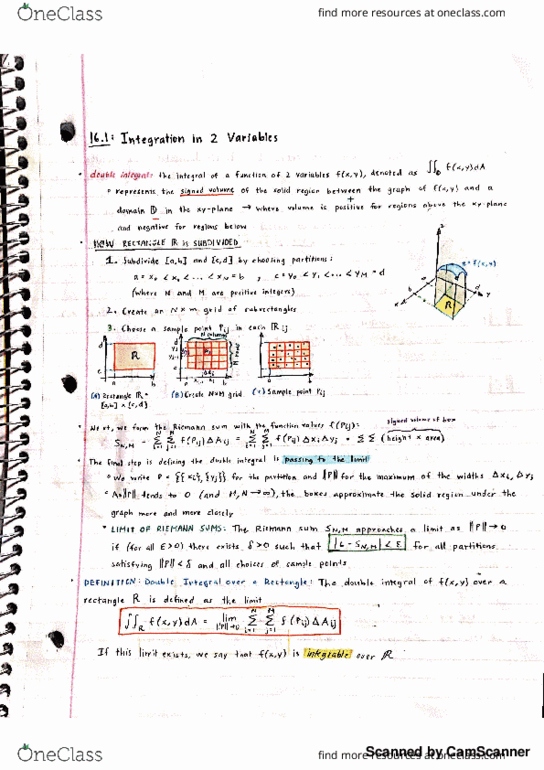 OneClass
find more resources at oneclass.com
16.1: Integration in 2 Variables
• double integral: the integral of a function of 2 variables f(x,y), denoted as ∬_D f(x,y)dA
◦ represents the signed volume of the solid region between the graph of f(x,y) and a
domain D in the xy-plane → where volume is positive for regions above the xy-plane
and negative for regions below
HOW RECTANGLE R IS SUBDIVIDED
1. Subdivide [a,b] and [c,d] by choosing partitions:
a = x₀ < x₁ < ... < x_N = b , c = y₀ < y₁ < ... < y_M = d
(where N and M are positive integers)
2. Create an N × M grid of subrectangles
3. Choose a sample point P_ij in each R_ij
z = f(x,y)
R
(A) Rectangle R =
[a,b] × [c,d]
(B) Create N×M grid
(C) Sample point P_ij
• Next, we form the Riemann sum with the function values f(P_ij):
signed volume of box
S_N,M = Σ_{i=1}^{N} Σ_{j=1}^{M} f(P_ij) ΔA_ij = Σ_{i=1}^{N} Σ_{j=1}^{M} f(P_ij) Δx_i Δy_j = Σ Σ (height × area)
• The final step is defining the double integral is passing to the limit
◦ We write P = {{x_i}, {y_j}} for the partition and ||P|| for the maximum of the widths Δx_i, Δy_j
◦ As ||P|| tends to 0 (and M, N → ∞), the boxes approximate the solid region under the
graph more and more closely
• LIMIT OF RIEMANN SUMS: The Riemann sum S_N,M approaches a limit as ||P|| → 0
if (for all ε>0) there exists δ>0 such that |L - S_N,M| < ε for all partitions
satisfying ||P|| < δ and all choices of sample points
• DEFINITION: Double Integral over a Rectangle: The double integral of f(x,y) over a
rectangle R is defined as the limit
∬_R f(x,y)dA = lim_{||P||→0} Σ_{i=1}^{N} Σ_{j=1}^{M} f(P_ij) ΔA_ij
If this limit exists, we say that f(x,y) is integrable over R
OneClass
find more resources at oneclass.com
Scanned by CamScanner